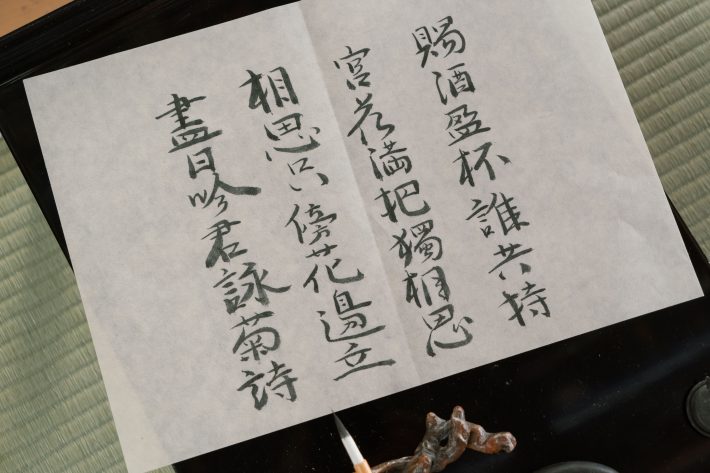 賜酒盈杯誰共持
宮花満把獨相思
相思只傍花邊立
盡日吟君詠菊詩